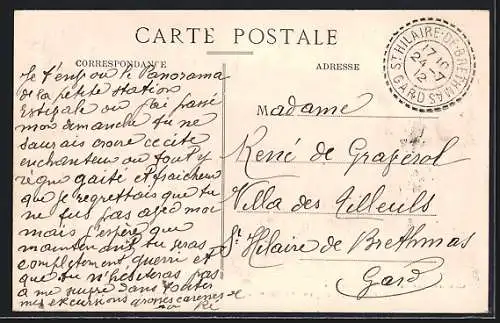 CARTE POSTALE
CORRESPONDANCE
ADRESSE
ST HILAIRE-DE-BRETHMAS
17 10
24 -7
12
GARD
Je t'envoi le Panorama
de la petite station
Estivale ou j'ai passé
mon dimanche tu ne
saurais croire ce site
enchanteur ou tout y
règne gaité et fraicheur
que je regrettais que tu
ne fus pas avec moi
mais j'espère que
maintenant tu seras
completement guerri et
que tu n'hésiteras pas
a me suivre dans toutes
mes excursions grosses caresses de
Madame
René de Graferol
Villa des Tilleuls
St Hilaire de Brethmas
Gard